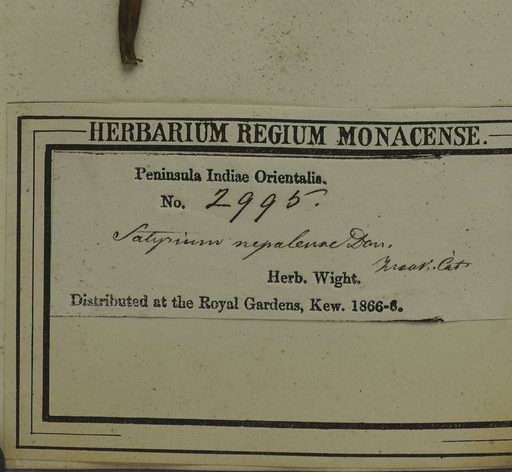 HERBARIUM REGIUM MONACENSE.
Peninsula Indiae Orientalis.
No. 2995.
Satyrium nepalense Don.
Cat.
Herb. Wight.
Distributed at the Royal Gardens, Kew. 1866-6.